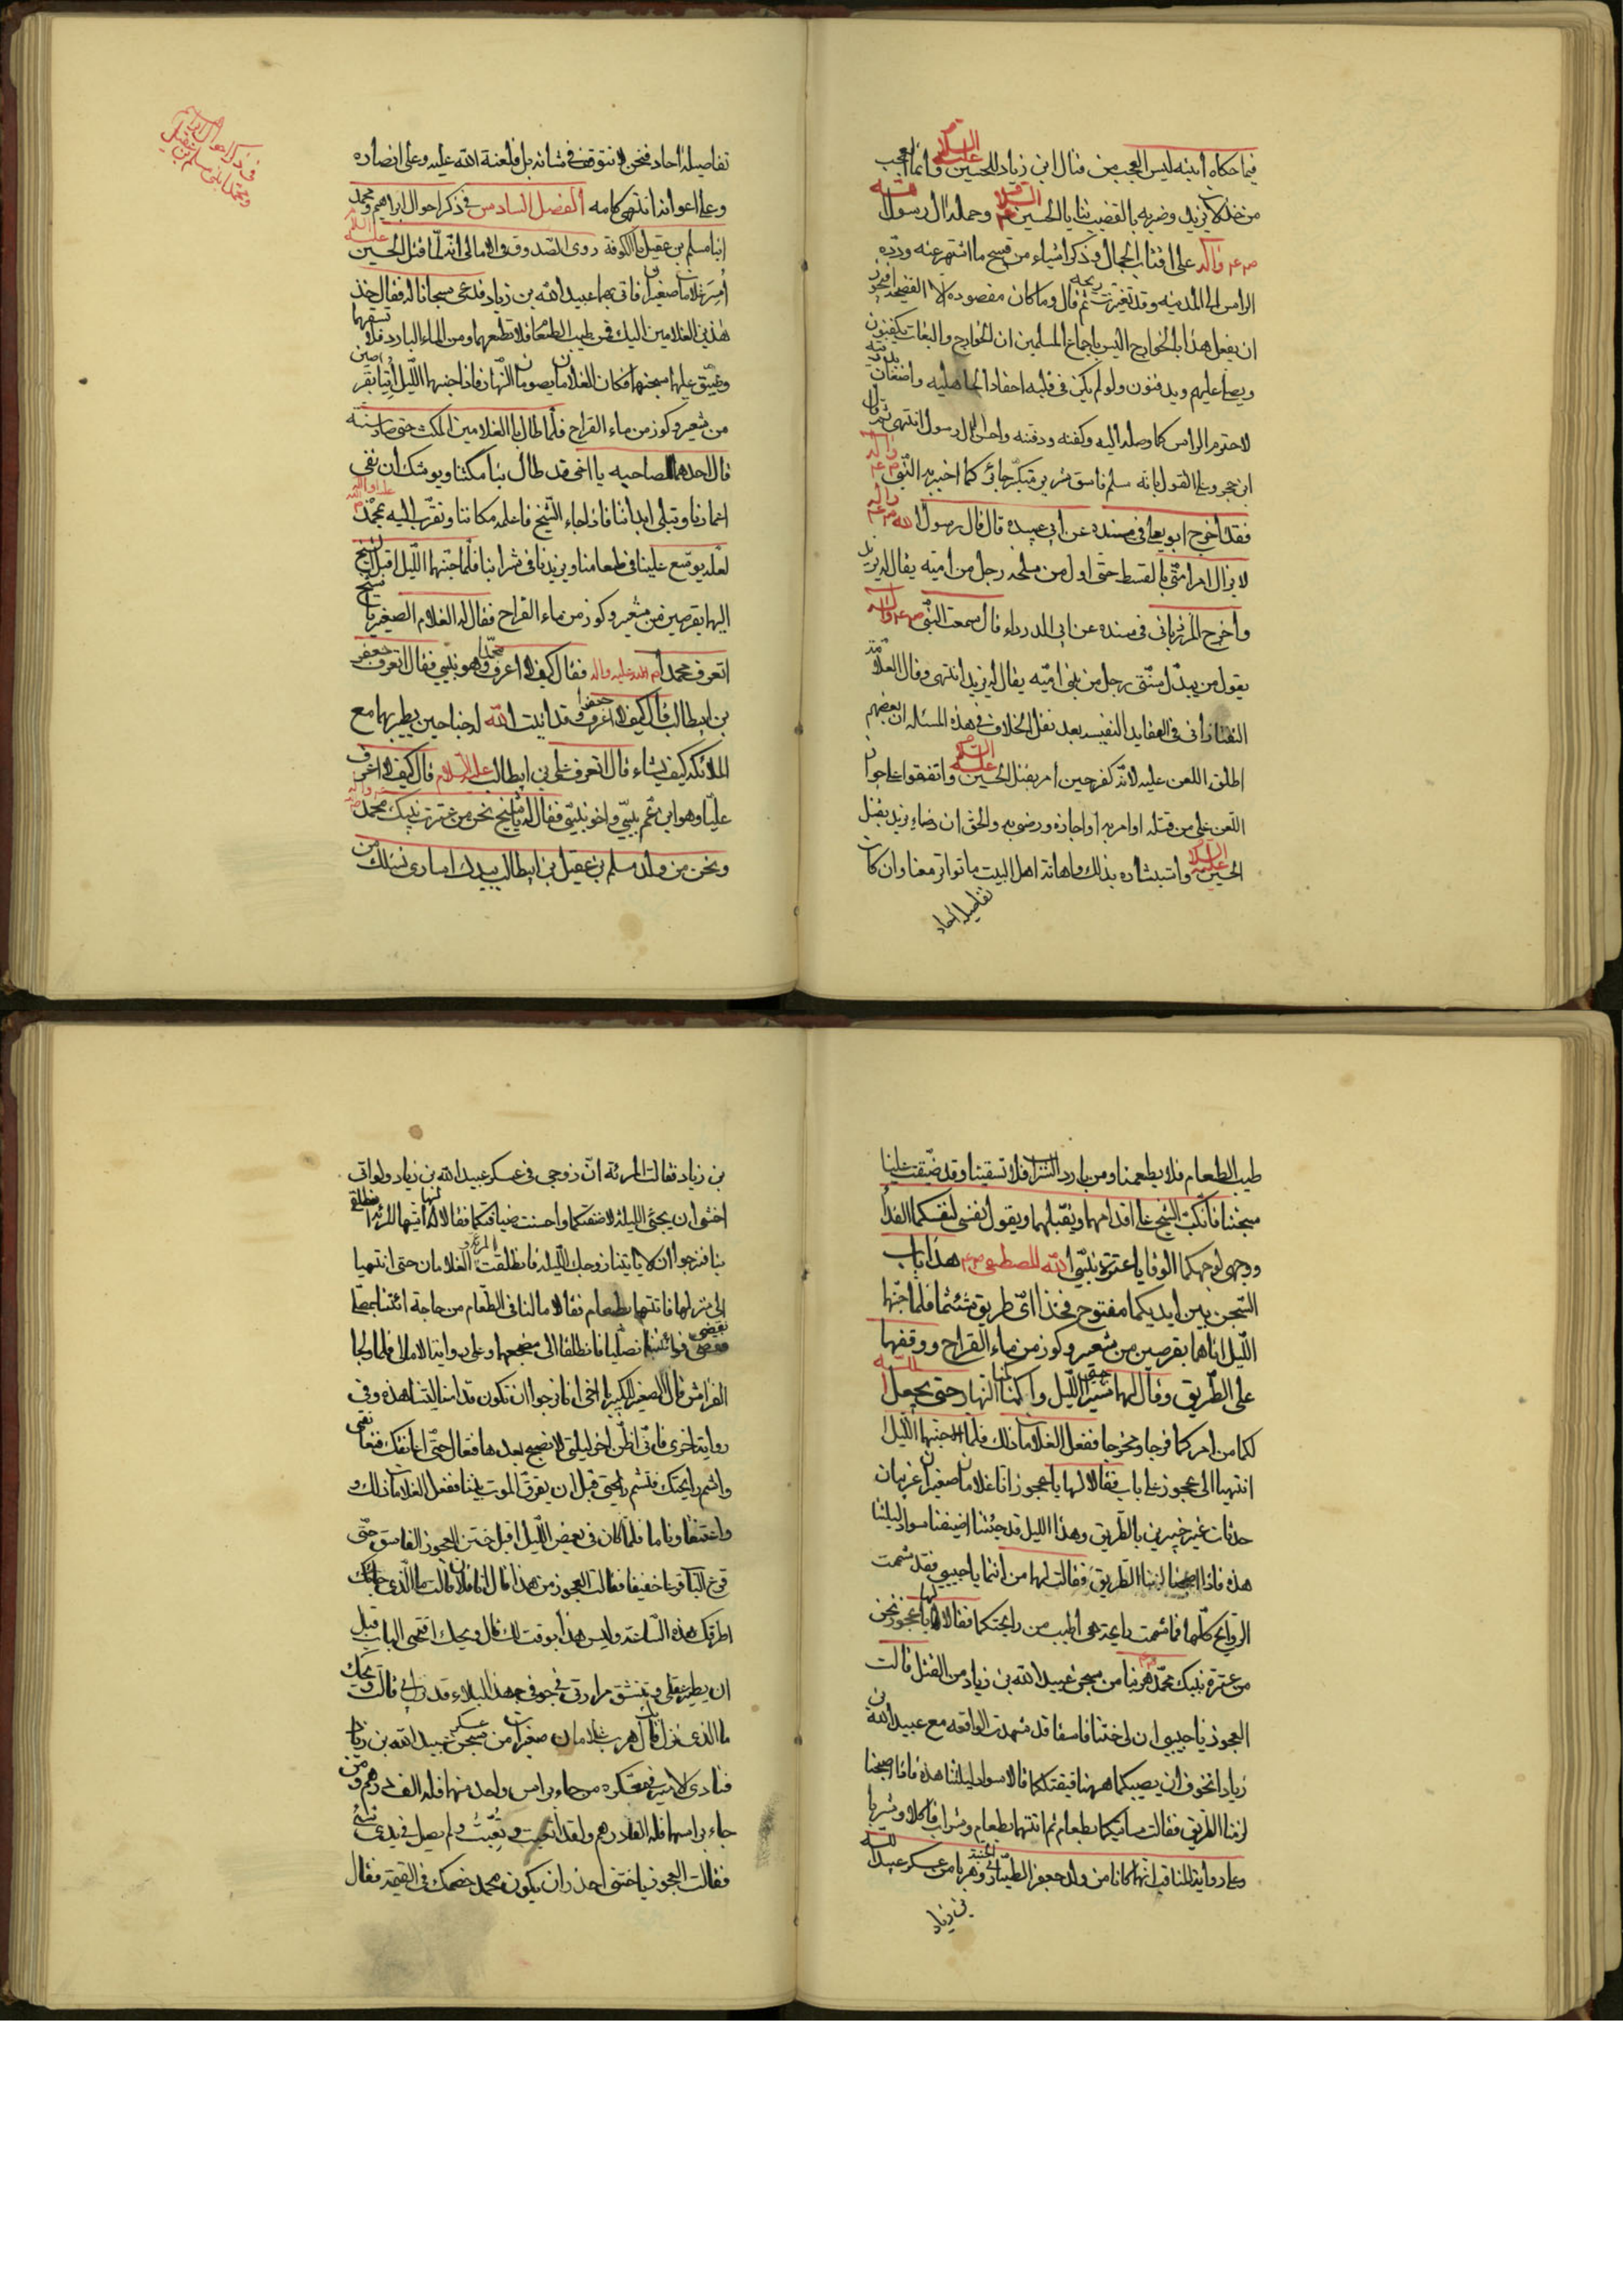 فيما حكاه ابنه ليس العجب من قتال ابن زياد للحسين عليه السلام وانما العجب
من خذلان يزيد وضربه بالقضيب ثنايا الحسين عليه السلام وحمله ال رسول الله
ص ع م واله على اقتاب الجمال وذكر اشياء من قبيح ما اشتهر عنه ورده
الراس الى المدينه وقد تغيرت ريحه ثم قال وما كان مقصوده الا الفضيحه افيجوز
ان يفعل هذا بالخوارج اليس باجماع المسلمين ان الخوارج والبغات يكفنون
ويصلى عليهم ويدفنون ولو لم يكن في قلبه احقاد الجاهليه واضغان بدريه
لاحترم الراس كما وصل اليه وكفنه ودفنه واحسن الى ال رسول انتهى ثم قال
ابن حجر وعلى القول بانه مسلم فاسق شرير متكبر جائر كما اخبر به النبي ص ع م واله
فقد اخرج ابو يعلى في مسنده عن ابي عبيده قال قال رسول الله ص ع م واله
لا يزال امر امتي بالقسط حتى اول من يثلمه رجل من امية يقال له يزيد
واخرج المرزباني في مسنده عن ابي الدرداء قال سمعت النبي ص ع م واله
يقول من يبدل سنتي رجل من بني امية يقال له يزيد انتهى وقال العلامة
التفتازاني في العقايد النفيسه بعد نقل الخلاف في هذه المسئله ان بعضهم
اطلق اللعن عليه لانه كفر حين امر بقتل الحسين عليه السلام واتفقوا على جواز
اللعن على من قتله او امر به او اجازه ورضى به والحق ان رضاء يزيد بقتل
الحسين عليه السلام واستبشاره بذلك واهانة اهل البيت ما تواتر معنا وان كان
تفاصيله احاد
في ذكر احوال ابراهيم
ومحمد ابني مسلم بن عقيل
تفاصيله احاد فنحن لا نتوقف في شانه بل فلعنة الله عليه وعلى انصاره
وعلى اعوانه انتهى كلامه الفصل السادس في ذكر احوال ابراهيم ومحمد
ابنا مسلم بن عقيل بالكوفة روى الصدوق في الامالي انه لما قتل الحسين عليه السلام
اسر غلامان صغيران فاتى بهما عبيد الله بن زياد فدعى سجانا له فقال خذ
هذين الغلامين اليك فمن طيب الطعام فلا تطعمهما ومن الماء البارد فلا تسقهما
وضيق عليهما سجنهما فكان الغلامان يصومان النهار فاذا جنهما الليل اتيا بقرصين
من شعير وكوز من ماء القراح فلما طال بالغلامين المكث حتى صار سنة
قال احدهما لصاحبه يا اخي قد طال بنا مكثنا ويوشك ان تفنى
اعمارنا وتبلى ابداننا فاذا جاء الشيخ فاعلمه مكاننا وتقرب اليه بمحمد
لعله يوسع علينا في طعامنا ويزيدنا في شرابنا فلما جنهما الليل اقبل الشيخ
اليهما بقرصين من شعير وكوز من ماء القراح فقال له الغلام الصغير يا شيخ
اتعرف محمدا صلى الله عليه واله فقال كيف لا اعرف محمدا وهو نبيي فقال اتعرف جعفر
بن ابيطالب قال كيف لا اعرف جعفرا وقد انبت الله له جناحين يطير بهما مع
الملائكه كيف يشاء قال اتعرف علي بن ابيطالب عليه السلام قال كيف لا اعرف
عليا وهو ابن عم نبيي واخو نبيي فقال له يا شيخ نحن من عترة نبيك محمد
ونحن من ولد مسلم بن عقيل بن ابيطالب بيدك اسارى نسئلك من
طيب الطعام فلا يطعمنا ومن بارد الشراب فلا تسقينا وقد ضيقت علينا
سجننا فانكب الشيخ على اقدامهما ويقبلهما ويقول نفسي لنفسكما الفدا
ووجهي لوجهكما الوقا يا عترة نبي الله المصطفى ص ع م هذا باب
السجن بين ايديكما مفتوح فخذا اي طريق شئتما فلما جنهما
الليل اتاهما بقرصين من شعير وكوز من ماء القراح ووقفهما
على الطريق وقال لهما سيرا الليل واكمنا النهار حتى يجعل الله
لكما من امركما فرجا ومخرجا ففعل الغلامان ذلك فلما جنهما الليل
انتهيا الى عجوز على باب فقالا لها يا عجوز انا غلامان صغيران غريبان
حدثان غير خبيرين بالطريق وهذا الليل قد جننا اضيفنا سواد ليلتنا
هذه فاذا اصبحنا لزمنا الطريق فقالت لهما من انتما يا حبيبي فقد شممت
الروايح كلها فما شممت رايحة هي اطيب من رايحتكما فقالا لها يا عجوز نحن
من عترة نبيك محمد هربنا من سجن عبيد الله بن زياد من القتل قالت
العجوز يا حبيبي ان لي ختنا فاسقا قد شهد الواقعه مع عبيد الله بن
زياد اتخوف ان يصيبكما ههنا فيقتلكما قالا سواد ليلتنا هذه فاذا اصبحنا
لزمنا الطريق فقالت ساتيكما بطعام ثم اتتهما بطعام وشراب فاكلا وشربا
وعلى رواية المناقب انهما كانا من ولد جعفر الطيار في الجنة وهربا من عسكر عبيد الله
بن زياد
بن زياد فقالت المرئة ان زوجي في عسكر عبيد الله بن زياد ولو اني
اخشى ان يجئ الليلة لاضفتكما واحسنت ضيافتكما فقالا لها ايتها المرئة انطلقي
بنا فنرجوا ان لا ياتينا زوجك الليلة فانطلقت المرئة والغلامان حتى انتهيا
الى منزلها فاتتهما بطعام فقالا ما لنا في الطعام من حاجة ائتنا بمصلا
نقضي فوائتنا فصليا فانطلقا الى مضجعهما وعلى رواية الامالي فلما ولجا
الفراش قال الصغير للكبير يا اخي انا نرجوا ان نكون قد امنا ليلتنا هذه وفي
رواية اخرى فاني اظن اخر ليلتي لا نصبح بعدها فتعال حتى اعانقك وتعانقني
واشم رايحتك وتشم رايحتي قبل ان يفرق الموت بيننا ففعل الغلامان ذلك و
واعتنقا وناما فلما كان في بعض الليل اقبل ختن العجوز الفاسق حتى
قرع الباب قرعا خفيفا فقالت العجوز من هذا قال انا فلان قالت ما الذي
اطرقك هذه الساعة وليس هذا بوقت لك قال ويحك افتحي الباب قبل
ان يطير عقلي وتنشق مرارتي في جوفي جهد البلاء قد نزل بي قالت ويحك
ما الذي نزل بك قال هرب غلامان صغيران من عسكر عبيد الله بن زياد
فنادى الامير في معسكره من جاء براس واحد منهما فله الف درهم ومن
جاء براسهما فله الفا درهم ولقد اتعبت وتعبت ولم يصل في يدي شئ
فقالت العجوز يا ختني احذر ان يكون محمد خصمك في القيمة فقال